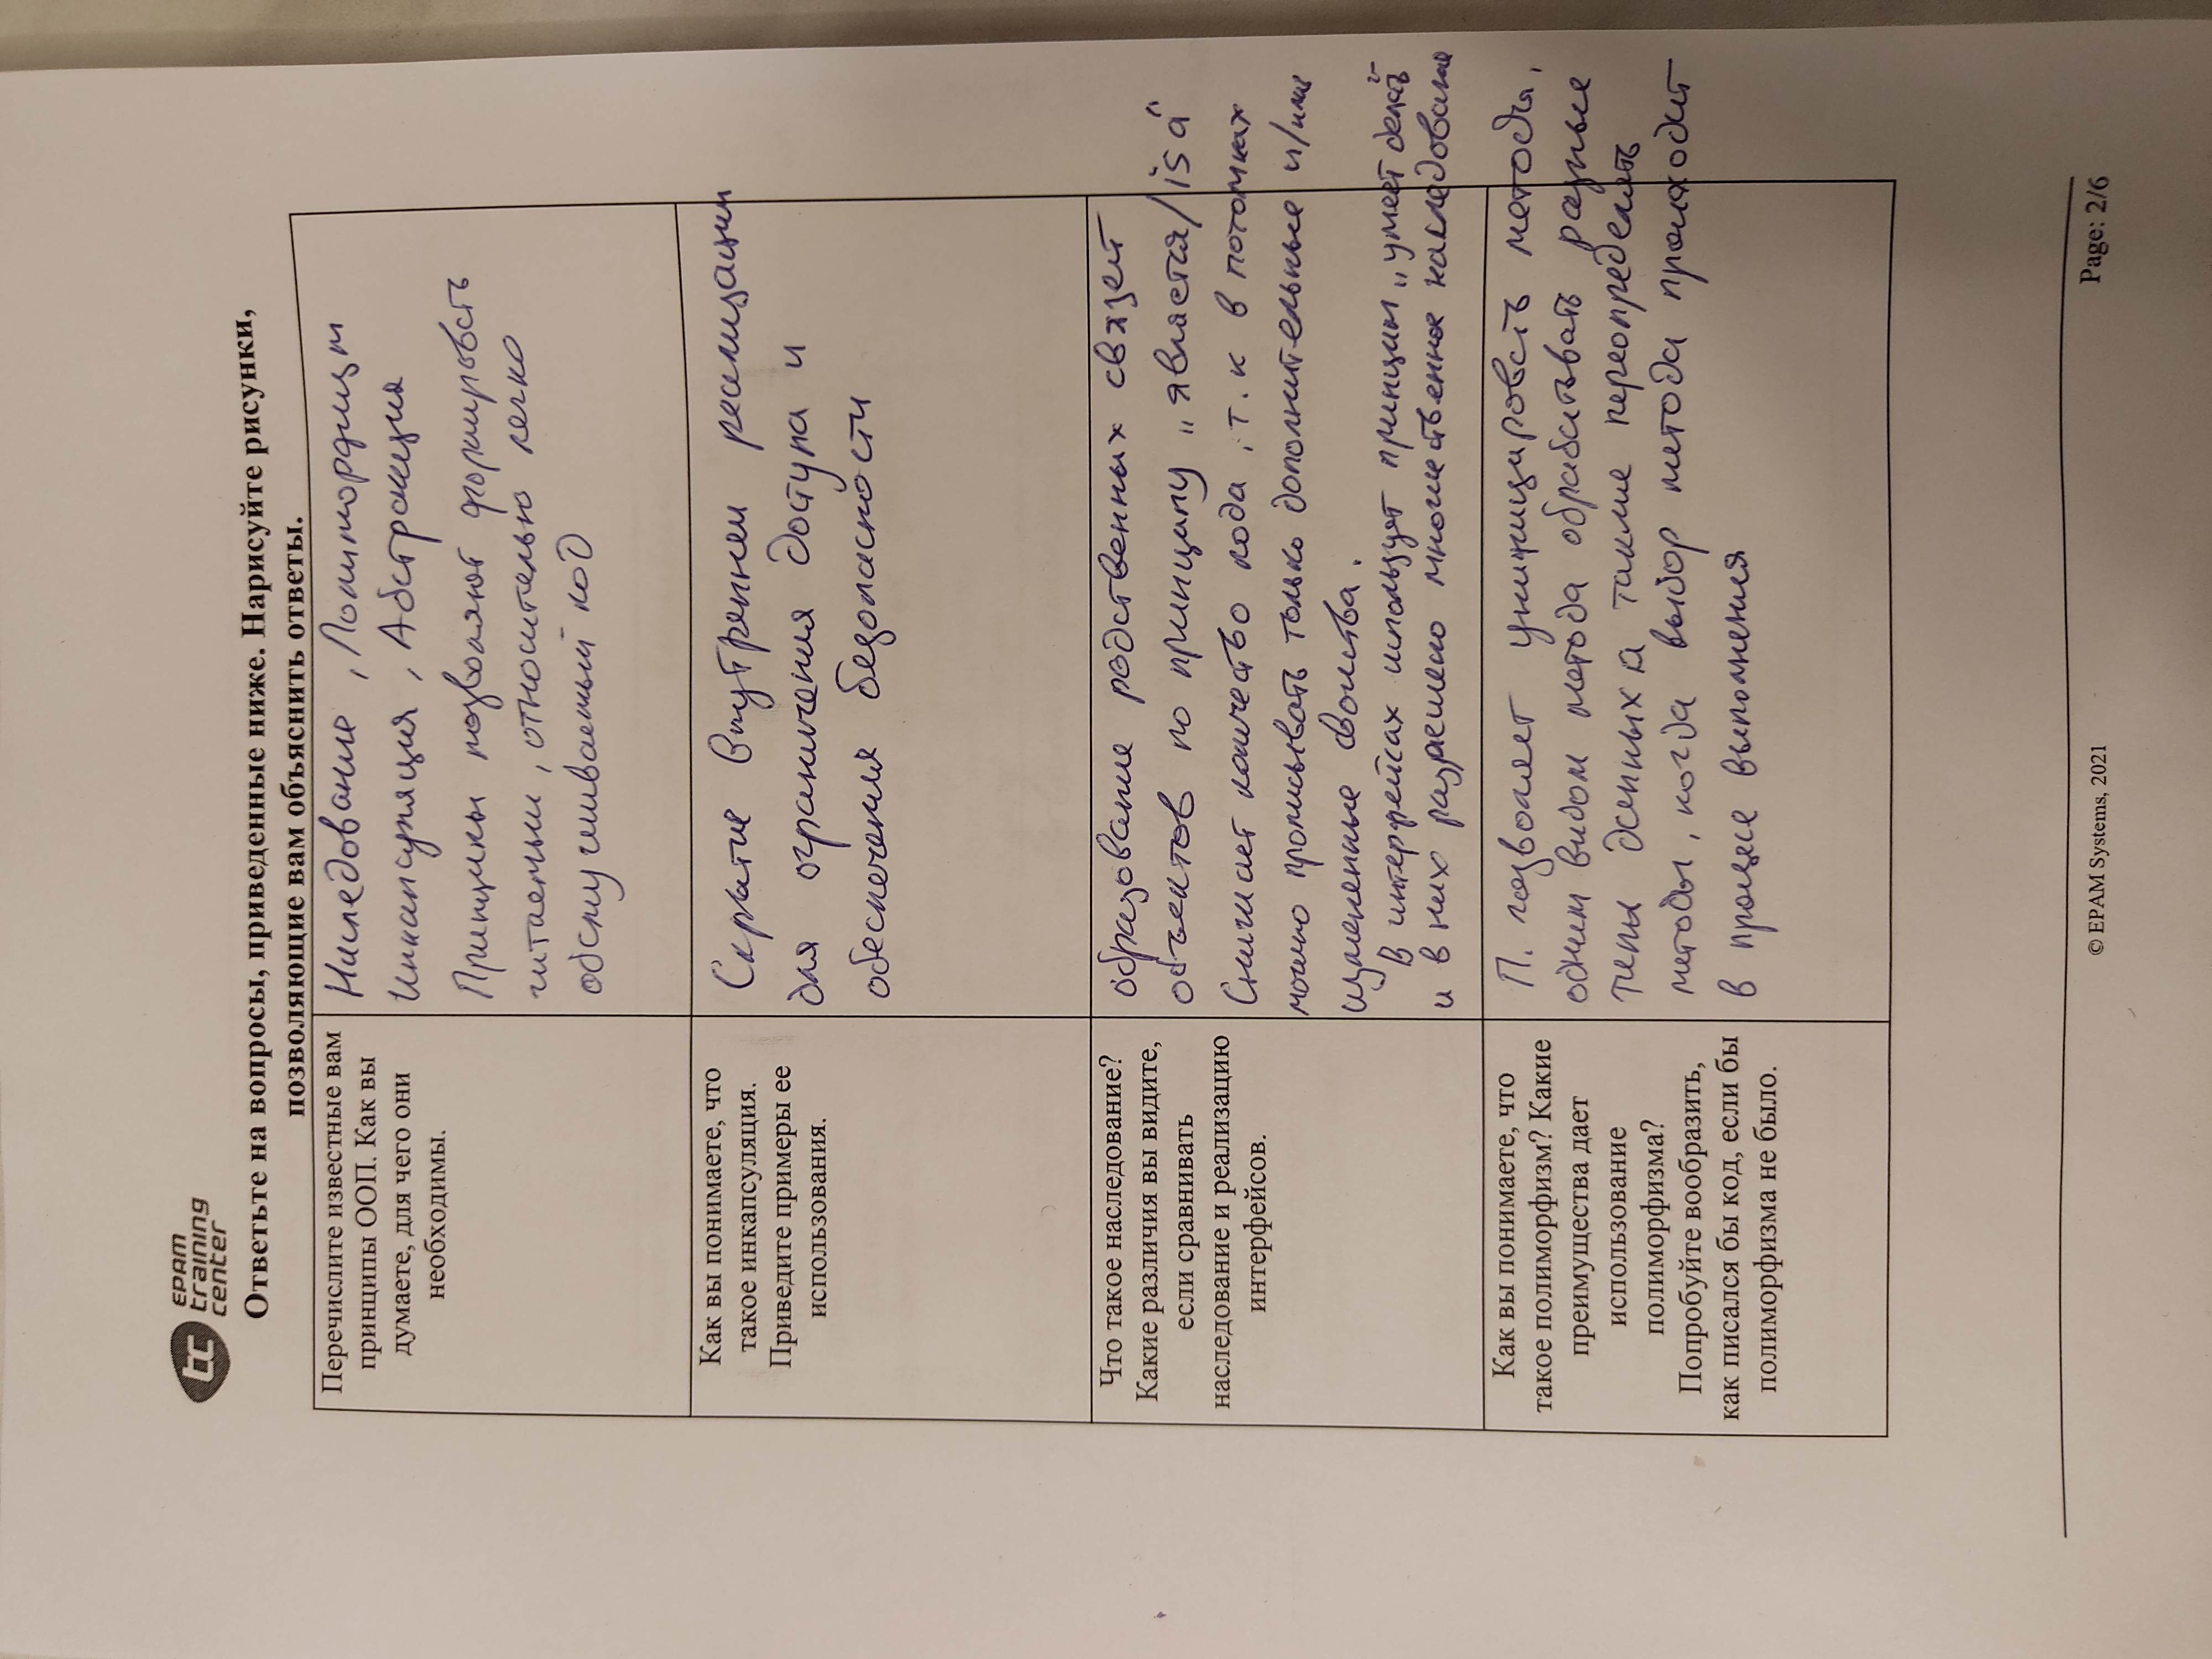 EPAM
training
center
Ответьте на вопросы, приведенные ниже. Нарисуйте рисунки,
позволяющие вам объяснить ответы.
Перечислите известные вам
принципы ООП. Как вы
думаете, для чего они
необходимы.
Наследование, Полиморфизм
Инкапсуляция, Абстракция
Принципы позволяют формировать
читаемый, относительно легко
обслуживаемый код
Как вы понимаете, что
такое инкапсуляция.
Приведите примеры ее
использования.
Скрытие внутренней реализации
для ограничения доступа и
обеспечения безопасности
Что такое наследование?
Какие различия вы видите,
если сравнивать
наследование и реализацию
интерфейсов.
образование родственных связей
объектов по принципу „является/is a"
Снижает количество кода, т.к в потомках
можно прописывать только дополнительные и/или
измененные свойства.
В интерфейсах использует принцип „умеет делать"
и в них разрешено множественное наследование
Как вы понимаете, что
такое полиморфизм? Какие
преимущества дает
использование
полиморфизма?
Попробуйте вообразить,
как писался бы код, если бы
полиморфизма не было.
П. позволяет унифицировать методы,
одним видом метода обрабатывать разные
типы данных а также переопределять
методы, когда выбор метода происходит
в процессе выполнения
© EPAM Systems, 2021
Page: 2/6